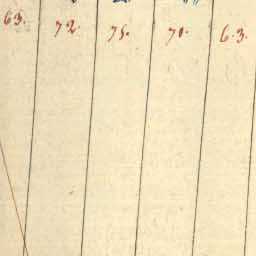 63. 72. 75. 70. 6.3.